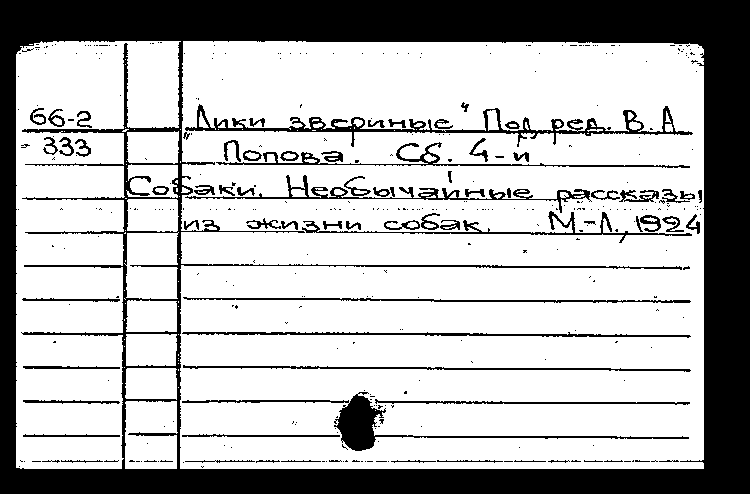 66-2 „Лики звериные“ Под ред. В. А
333 Попова. Сб. 4-й
Собаки. Необычайные рассказы
из жизни собак. М.-Л., 1924